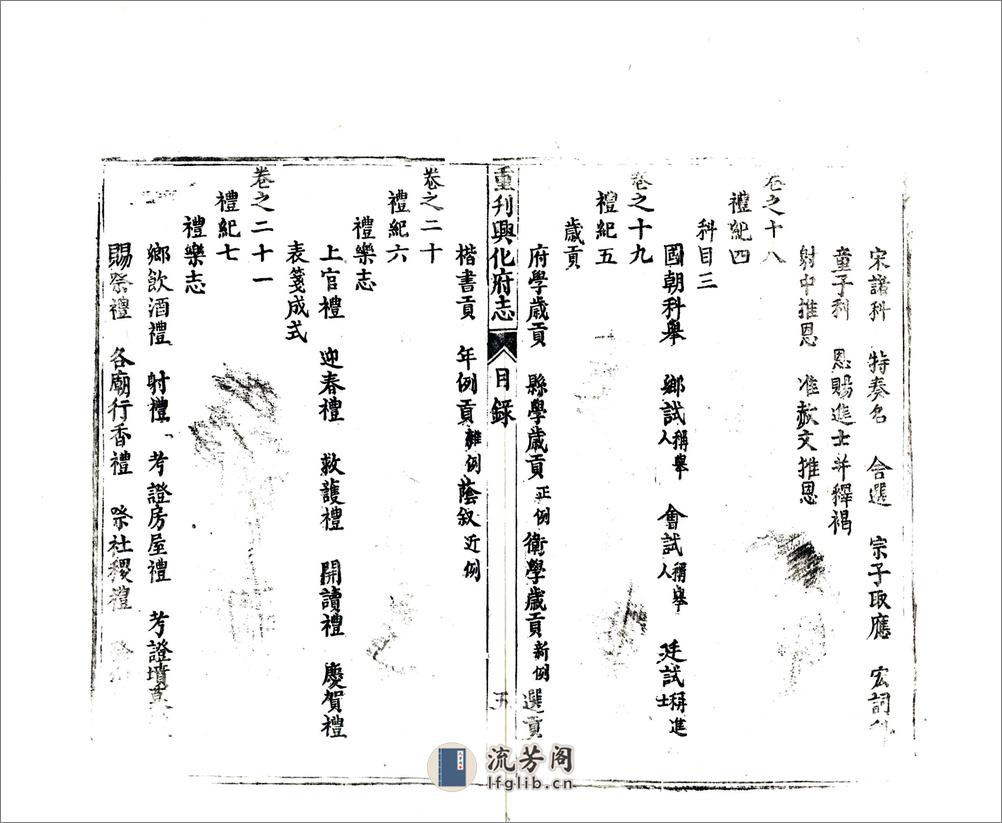 宋諸科　特奏名　合選　宗子取應　宏詞科
童子科　恩賜進士并釋褐
射中推恩　准赦文推恩
卷之十八
禮紀四
科目三
國朝科舉　鄉試稱舉人　會試稱舉人　廷試稱進士
卷之十九
禮紀五
歲貢
府學歲貢　縣學歲貢正例　衛學歲貢新例　選貢
重刊興化府志　目錄　五
楷書貢　年例貢雜例　蔭敘近例
卷之二十
禮紀六
禮樂志
上官禮　迎春禮　救護禮　開讀禮　慶賀禮
表箋成式
卷之二十一
禮紀七
禮樂志
鄉飲酒禮　射禮　考證房屋禮　考證墳
賜祭禮　各廟行香禮　祭社稷禮
流芳阁
lfglib.cn